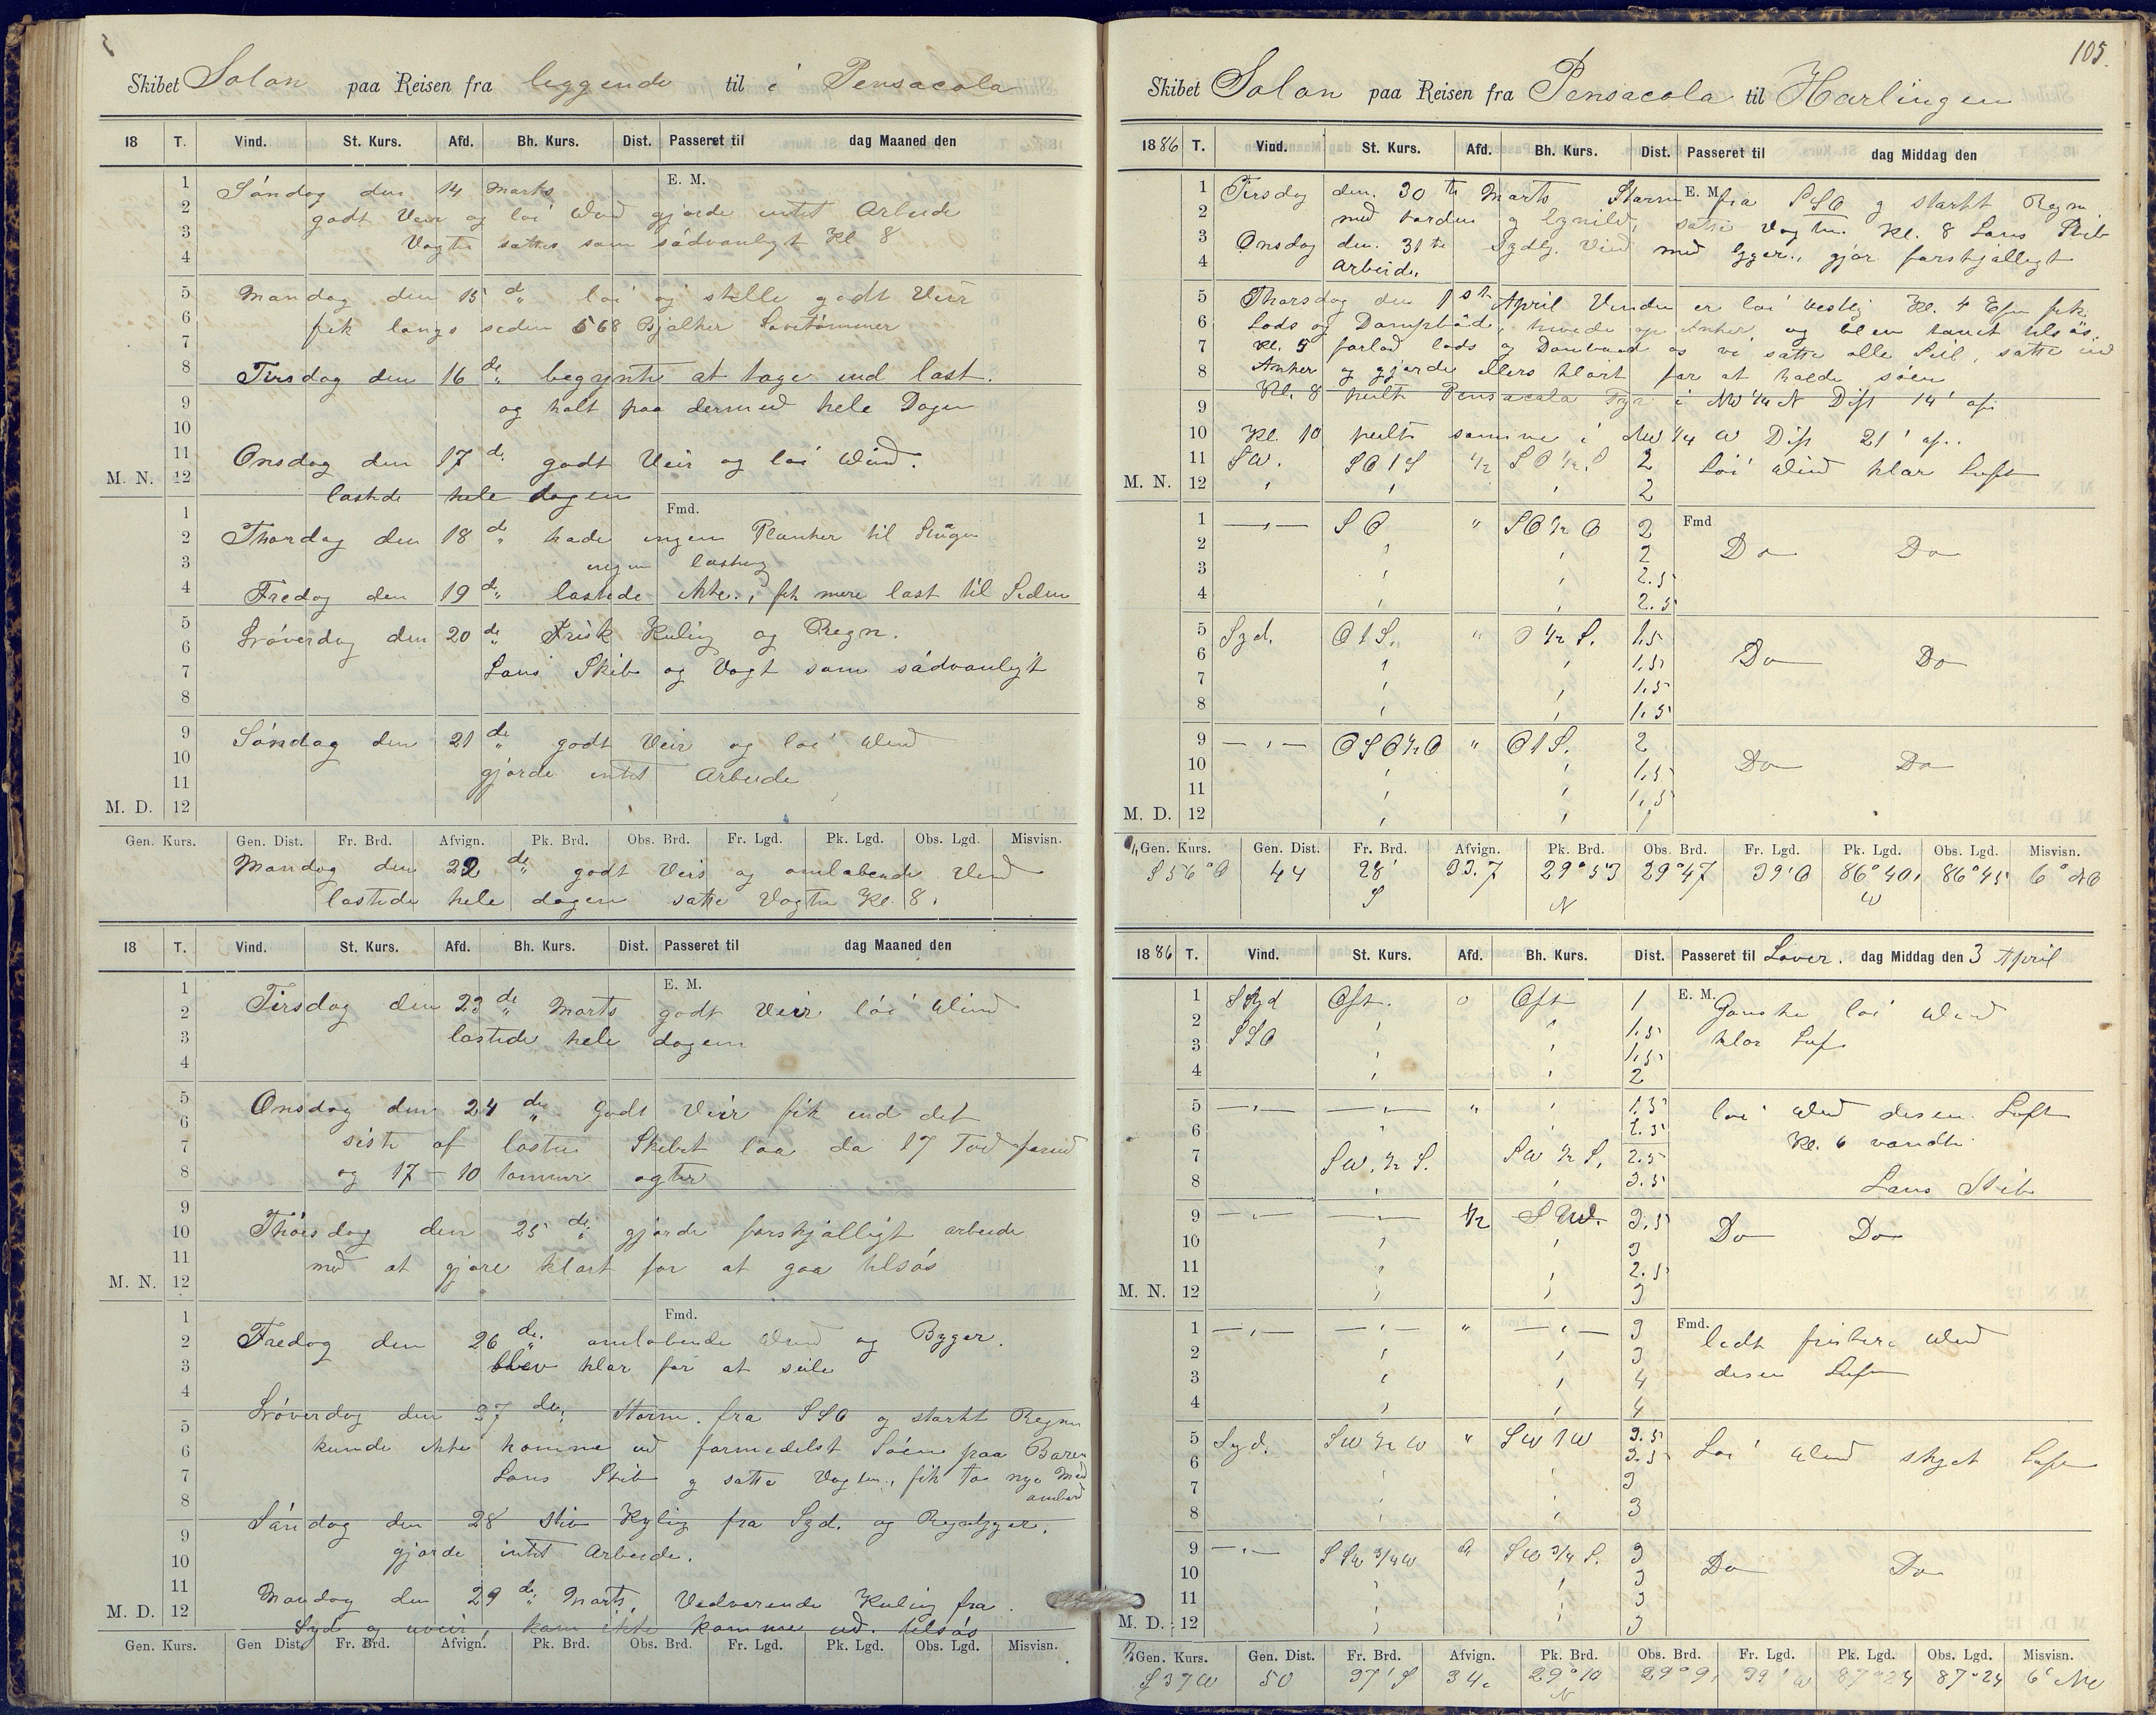 Skibet Solon paa Reisen fra leggende til i Pensacola
18 T. Vind. St. Kurs. Afd. Bh. Kurs. Dist. Passeret til dag Maaned den
E. M.
Söndag den 14 Marts
godt Veir og löi Wind gjorde intet Arbeide
Vagten sattes som sädvanligt Kl 8
Mandag den 15 de löi og stille godt Veir
fik langs siden 568 Bjalker Savetömmer
Tirsdag den 16 de begynte at tage ind last.
og halt paa dermed hele Dagen
Onsdag den 17 de godt Veir og löi Wind.
M. N. lastede hele dagen
Fmd.
Thorsdag den 18 de hade ingen Planker til
ingen lastning
Fredag den 19 de lastede ikke, fik mere last til Siden
Löverdag den 20 de Frisk Kuling og Regn.
Lens Skib og Vagt som sädvanligt
Söndag den 21 de godt Veir og löi Wind
gjorde intet Arbeide
M. D. 12
Gen. Kurs. Gen. Dist. Fr. Brd. Afvign. Pk. Brd. Obs. Brd. Fr. Lgd. Pk. Lgd. Obs. Lgd. Misvisn.
Mandag den 22 de godt Veir og omlöbende Vind
lastede hele dagen satte Vagten Kl. 8.
18 T. Vind. St. Kurs. Afd. Bh. Kurs. Dist. Passeret til dag Maaned den
E. M.
Tirsdag den 23 de Marts godt Veir löi Wind
lastede hele dagen
Onsdag den 24 de Godt Veir fik ind det
siste af lasten Skibet laa da 17 Fod forud
og 17 - 10 tommer agter
Thorsdag den 25 de gjorde forskjälligt arbeide
med at gjöre klart for at gaa tilsös
M. N. 12
Fmd.
Fredag den 26 de omlöbende Wind og Byger.
blev klar for at seile
Löverdag den 27 de Storm fra SSO og starkt Regn
kunde ikke komme ud formedelst Söen paa Baren
Lens Skib og satte Vagten, fik to nye Mænd
ombord
Söndag den 28 stiv Kyling fra Syd. og Regnbyger.
gjorde intet Arbeide.
Mandag den 29 de Marts, Vedvarende Kuling fra
M. D. 12
Syd og uveir, kom ikke komme ud tilsös
Gen. Kurs. Gen Dist. Fr. Brd. Afvign. Pk. Brd. Obs. Brd. Fr. Lgd. Pk. Lgd. Obs. Lgd. Misvisn.
105.
Skibet Solon paa Reisen fra Pensacola til Harlingen
1886 T. Vind. St. Kurs. Afd. Bh. Kurs. Dist. Passeret til dag Middag den
E. M.
Tirsdag den. 30 te Marts Storm fra SSO og starkt Regn
med torden og lynild, satte Vagten Kl. 8 Lens Skib
Onsdag den. 31 te Sydlg. Vind med byger, gjör forskjälligt
Arbeide.
Thorsdag den 1 st April Vinden er löi vestlig Kl. 4 Efm fik
Lods og Dampbåd, hivede op Anker og blev tauet tilsös,
Kl. 5 forlod lods og Dambaad os vi satte alle Seil, satte ind
Anker og gjorde ellers klart for at holde söen
Kl. 8 peilte Pensacola Fyr i NW 1/4 N Dist 14' af.
Kl. 10 peilte samme i NW 1/4 W Dist 21' af.
SW. SO 1 S 1/2 SO 1/2 S 2 Löi Wind klar Luft
M. N. 12 2
Fmd
1 SO " SO 1/2 O 2
2 2 Do Do
3 2.5
4 2.5
5 Syd. O 1 S. " O 1/2 S. 1.5
6 1.5 Do Do
7 1.5
8 1.5
9 OSO 1/2 O " O 1 S. 2
10 1.5 Do Do
11 1.5
M. D. 12 1
Gen. Kurs. Gen. Dist. Fr. Brd. Afvign. Pk. Brd. Obs. Brd. Fr. Lgd. Pk. Lgd. Obs. Lgd. Misvisn.
S 56° O 44 28' S 33.7 29° 53 N 29° 47 39' O 86° 40 W 86° 45 6° NO
1886 T. Vind. St. Kurs. Afd. Bh. Kurs. Dist. Passeret til Löver. dag Middag den 3 April
E. M.
1 Syd Ost. 0 Ost 1 Ganske löi Wind
2 SSO 1.5 klar Luft
3 1.5
4 2
5 " 1.5 löi Wind disen Luft
6 Kl. 6 vendte
7 SW. 1/2 S. SW 1/2 S. 2.5
8 3.5 Lens Skib
9 1/2 SW. 3.5 Do Do
10 3
11 2.5
M. N. 12 3
Fmd.
1 " 3 lidt friskere Wind
2 3 disen Luft
3 4
4 4
5 Syd. SW 1/2 W " SW 1 W 3.5
6 3.5 Löi Wind skyet Luft
7 3
8 3
9 SSW 3/4 W SW 3/4 S. 3
10 3 Do Do
11 3
M. D. 12 3
Gen. Kurs. Gen. Dist. Fr. Brd. Afvign. Pk. Brd. Obs. Brd. Fr. Lgd. Pk. Lgd. Obs. Lgd. Misvisn.
S 37 W 50 37' S 34. 29° 10 N 29° 9' 39' W 87° 24 87° 24 6°